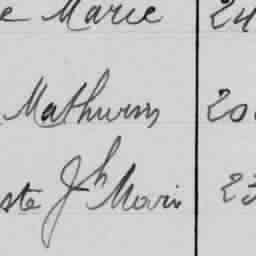 e Marie 24
Mathurin 20
ste Jh Marie 23